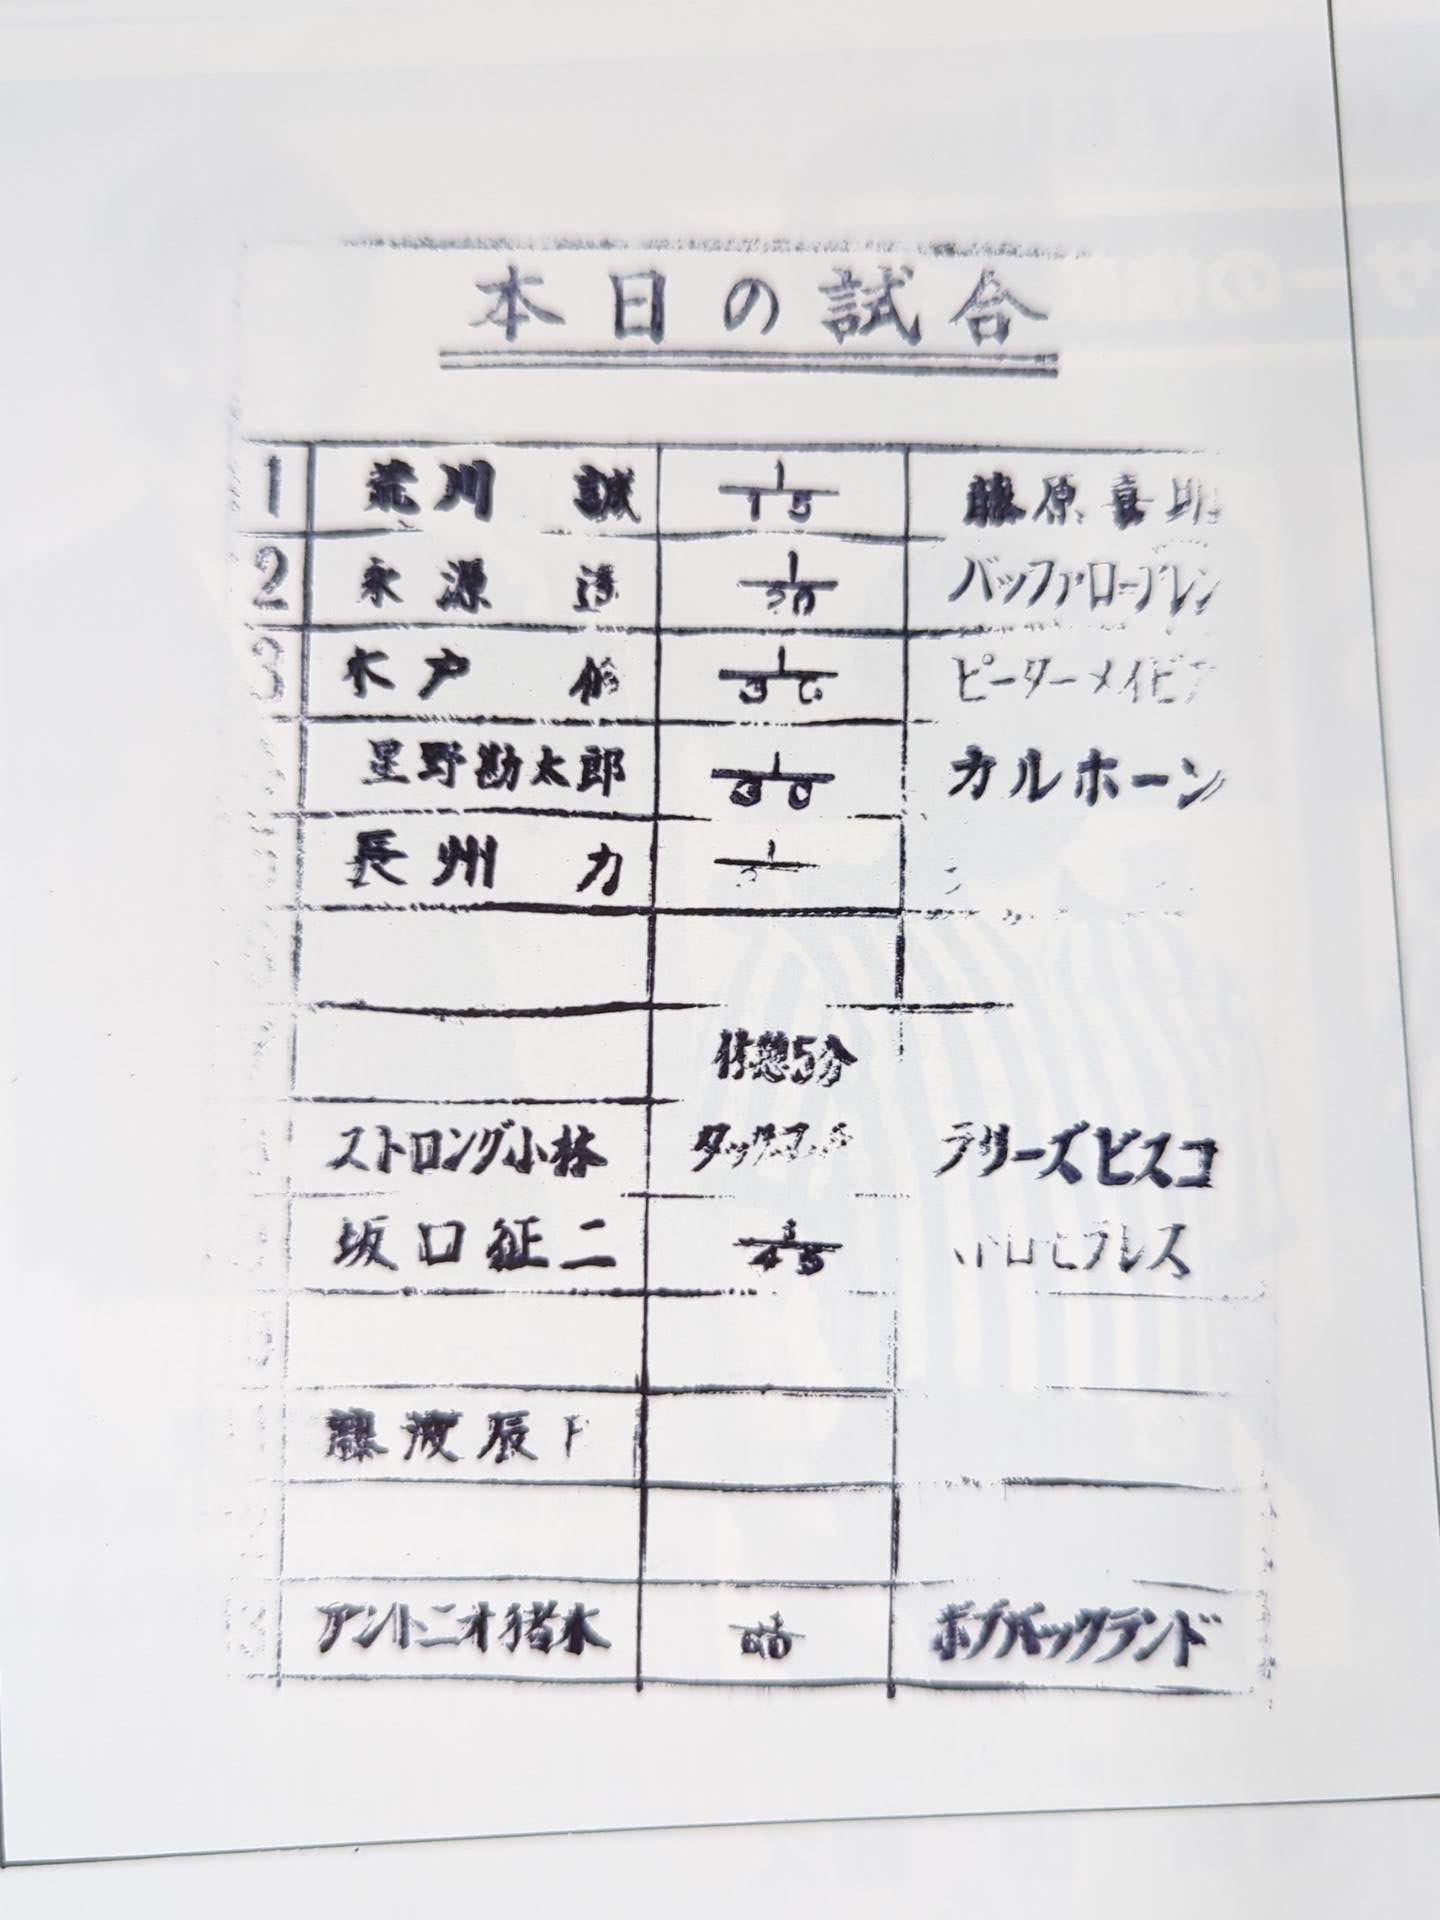 本日の試合
1 荒川 誠 1/15 藤原喜明
2 永源 遙 1/20 バッファローアレン
3 木戸 修 1/30 ピーターメイビア
星野勘太郎 1/30 カルホーン
長州 力 1/
休憩5分
ストロング小林 タッグマッチ ラリーズビスコ
坂口征二 3/45 プレス
藤波辰
アントニオ猪木 1/60 ボブバックランド